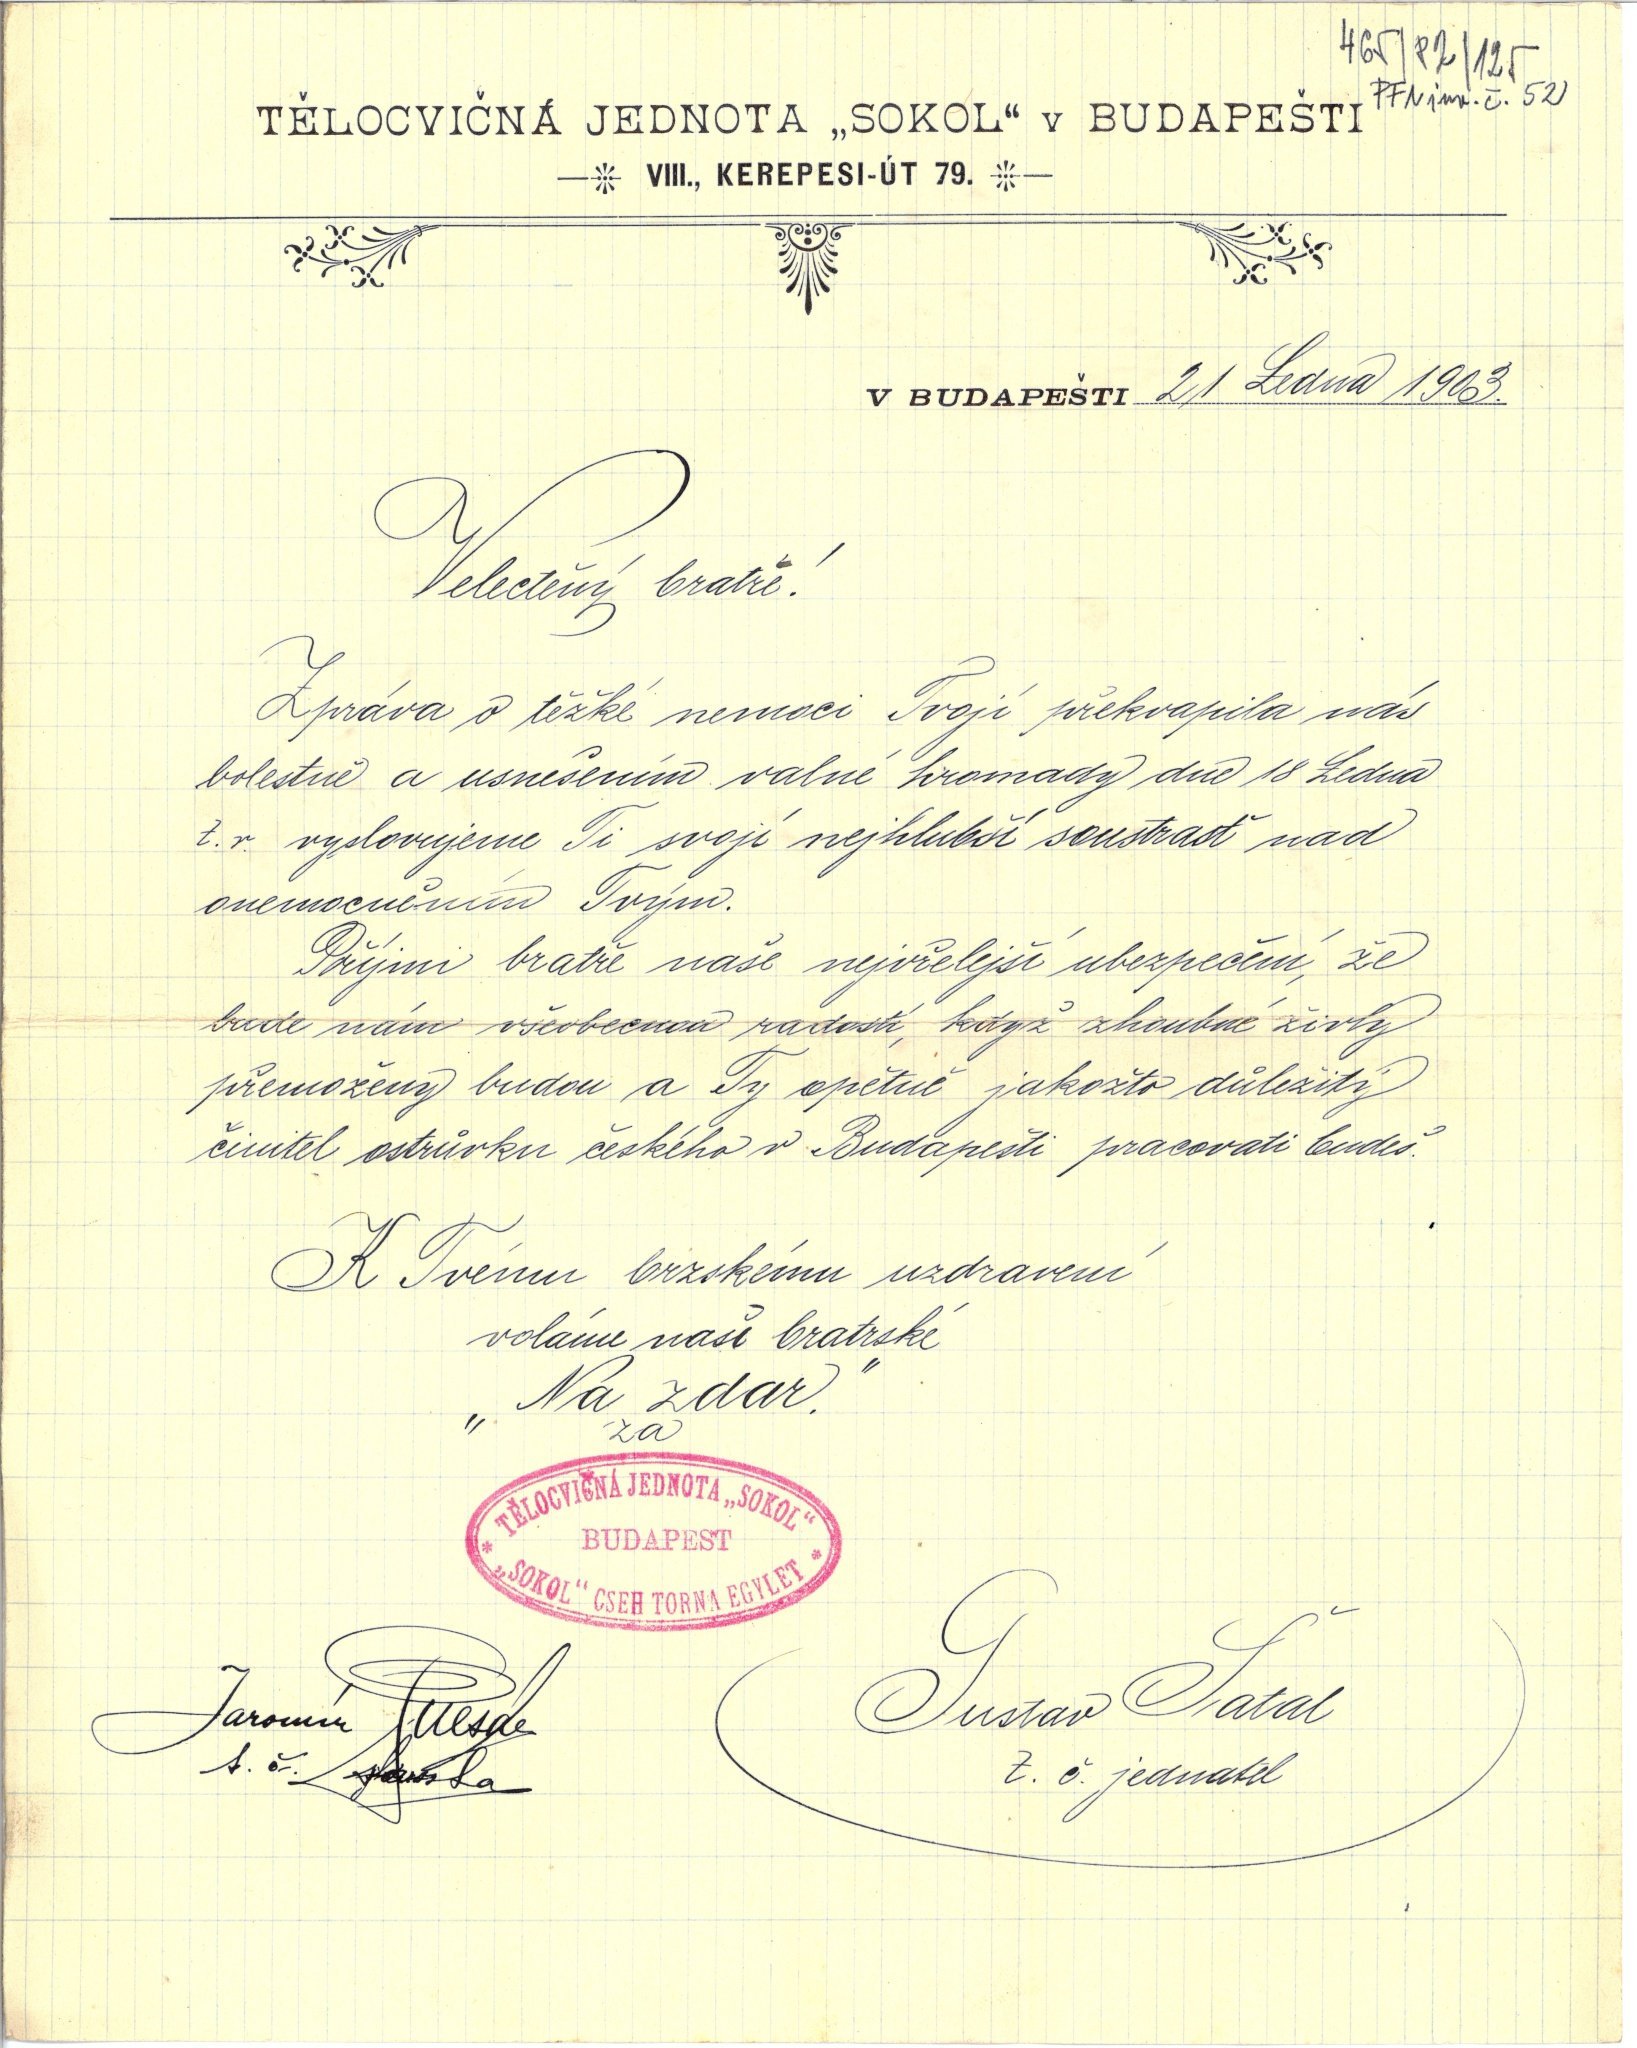 465/82/125
PFN inv. č. 52
TĚLOCVIČNÁ JEDNOTA „SOKOL“ v BUDAPEŠTI
VIII., KEREPESI-ÚT 79.
V BUDAPEŠTI 21 Ledna 1903.
Velectěný bratře!
Zpráva o těžké nemoci Tvojí překvapila nás
bolestně a usnešením valné hromady dne 18 Ledna
t. r. vyslovujeme Ti svojí nejhlubší soustrasť nad
onemocněním Tvým.
Přijmi bratře naše nejvřelejší ubezpečení, že
bude nám všeobecnou radostí, když zhoubné živly
přemoženy budou a Ty opětně jakožto důležitý
činitel ostrůvku českého v Budapešti pracovati budeš.
K Tvému brzskému uzdravení
voláme naše bratrské
„Na zdar.“
za
TĚLOCVIČNÁ JEDNOTA „SOKOL“
BUDAPEST
„SOKOL“ CSEH TORNA EGYLET
Jaromír
t. č.
Gustav Šatal
t. č. jednatel